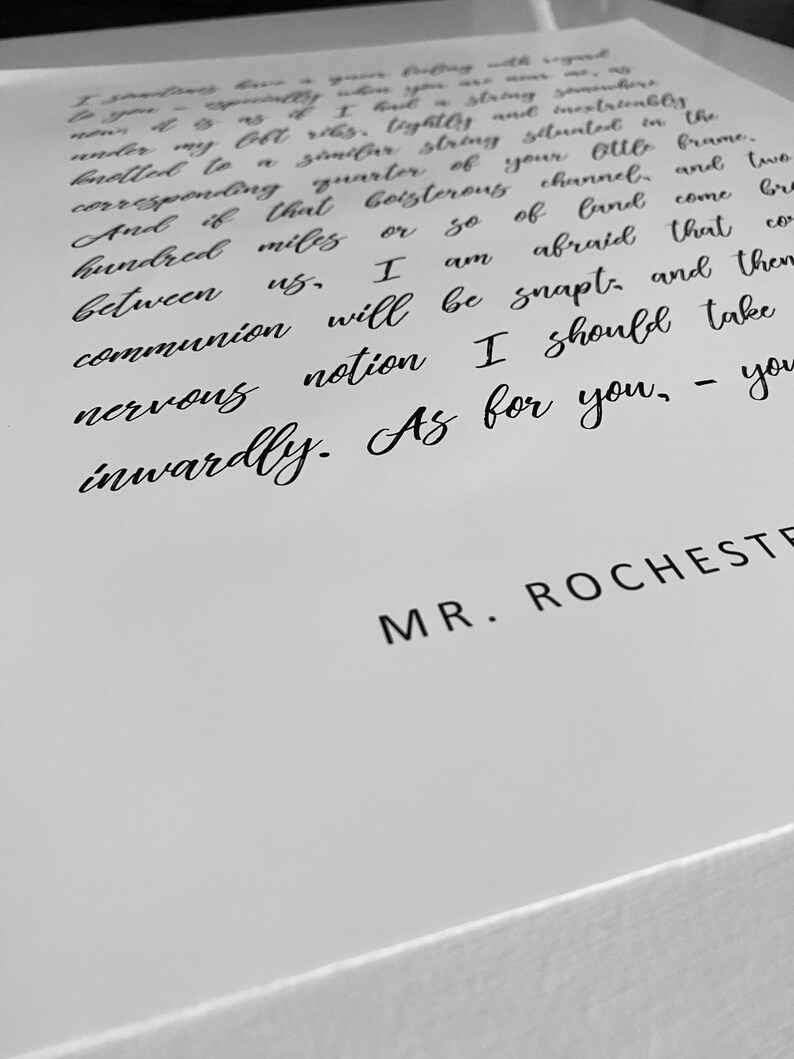 I sometimes have a queer feeling with regard
to you - especially when you are near me, as
now: it is as if I had a string somewhere
under my left ribs, tightly and inextricably
knotted to a similar string situated in the
corresponding quarter of your little frame.
And if that boisterous channel, and two
hundred miles or so of land come bro
between us, I am afraid that co
communion will be snapt; and then
nervous notion I should take
inwardly. As for you, - you
MR. ROCHESTE